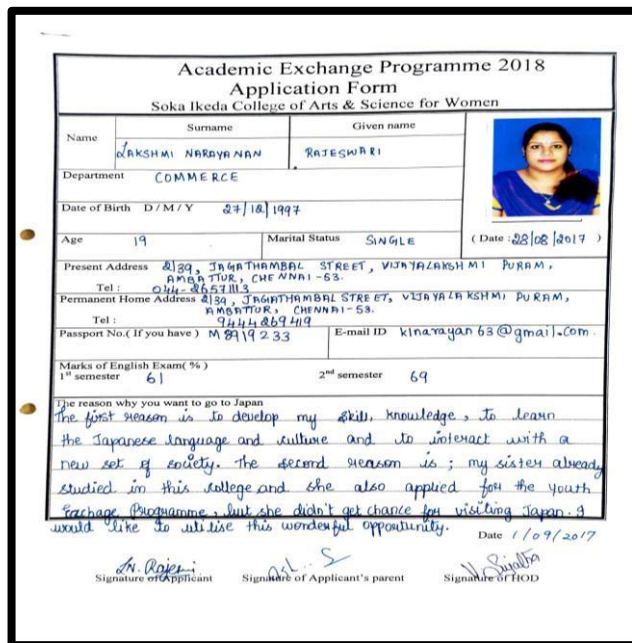 Academic Exchange Programme 2018
Application Form
Soka Ikeda College of Arts & Science for Women
Name
Surname
Given name
LAKSHMI NARAYANAN
RAJESWARI
Department COMMERCE
Date of Birth D / M / Y 27/12/1997
Age 19 Marital Status SINGLE
( Date : 28/08/2017 )
Present Address 2/39, JAGATHAMBAL STREET, VIJAYALAKSHMI PURAM,
AMBATTUR, CHENNAI-53.
Tel : 044-26571113
Permanent Home Address 2/39, JAGATHAMBAL STREET, VIJAYALAKSHMI PURAM,
AMBATTUR, CHENNAI-53.
Tel : 9444269419
Passport No.( If you have ) M8919233 E-mail ID klnarayan63@gmail.com.
Marks of English Exam( % )
1st semester 61 2nd semester 69
The reason why you want to go to Japan
The first reason is to develop my skill, knowledge, to learn
the Japanese language and culture and to interact with a
new set of society. The second reason is ; my sister already
studied in this college and she also applied for the youth
Programme, but she didn't get chance for visiting Japan. I
would like to utilise this wonderful opportunity.
Date 1/09/2017
LN. Rajesi
Signature of Applicant Signature of Applicant's parent Signature of HOD